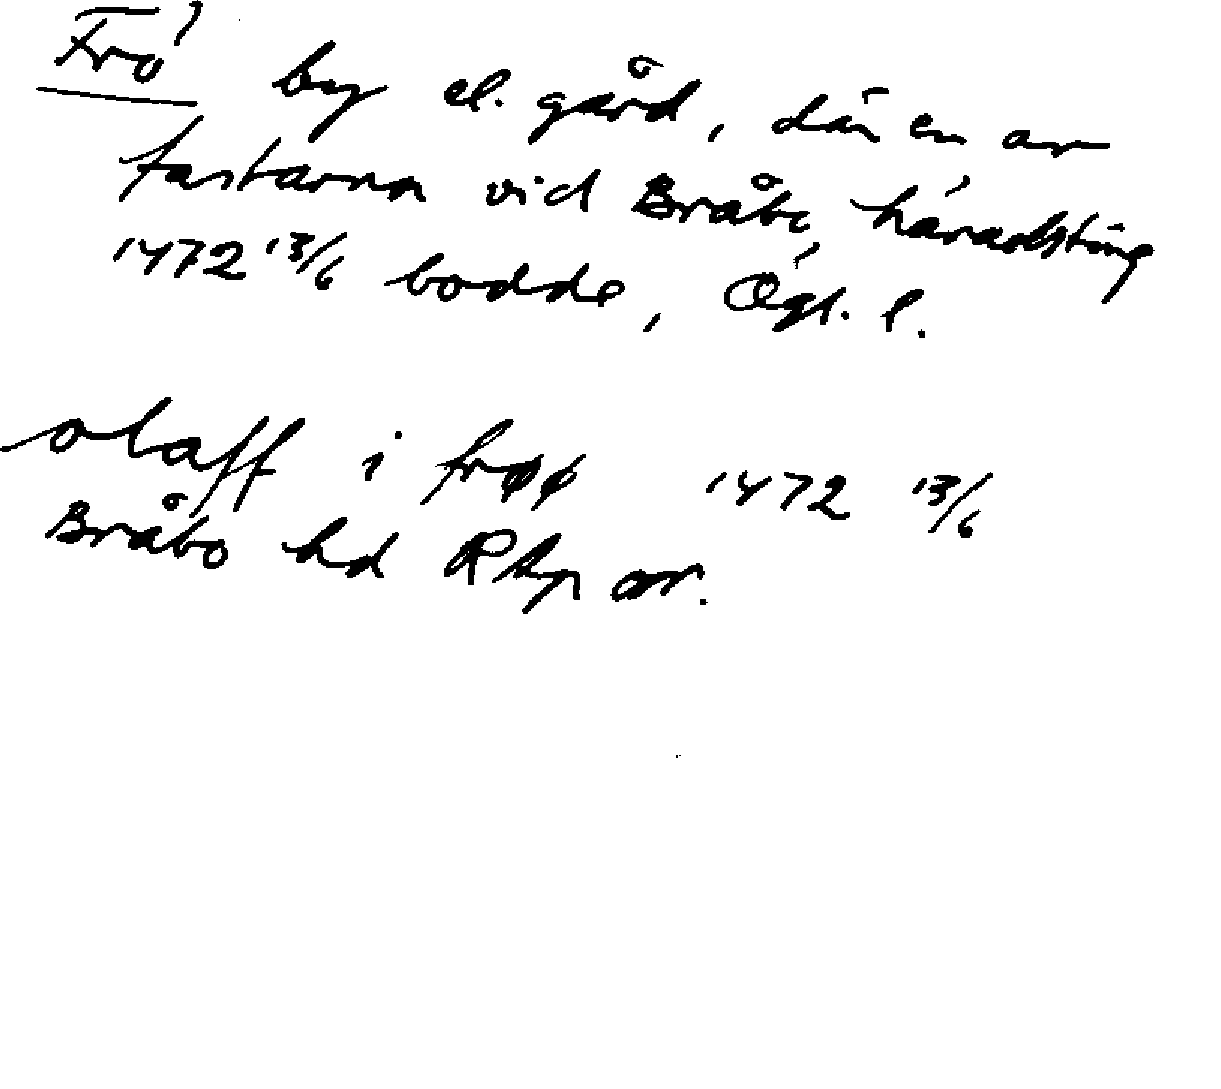 Frö by el. gård, där en av
fastarna vid Bråbo häradsting
1472 13/6 bodde, Ögl. l.
olaff i frøø 1472 13/6
Bråbo hd RAp or.